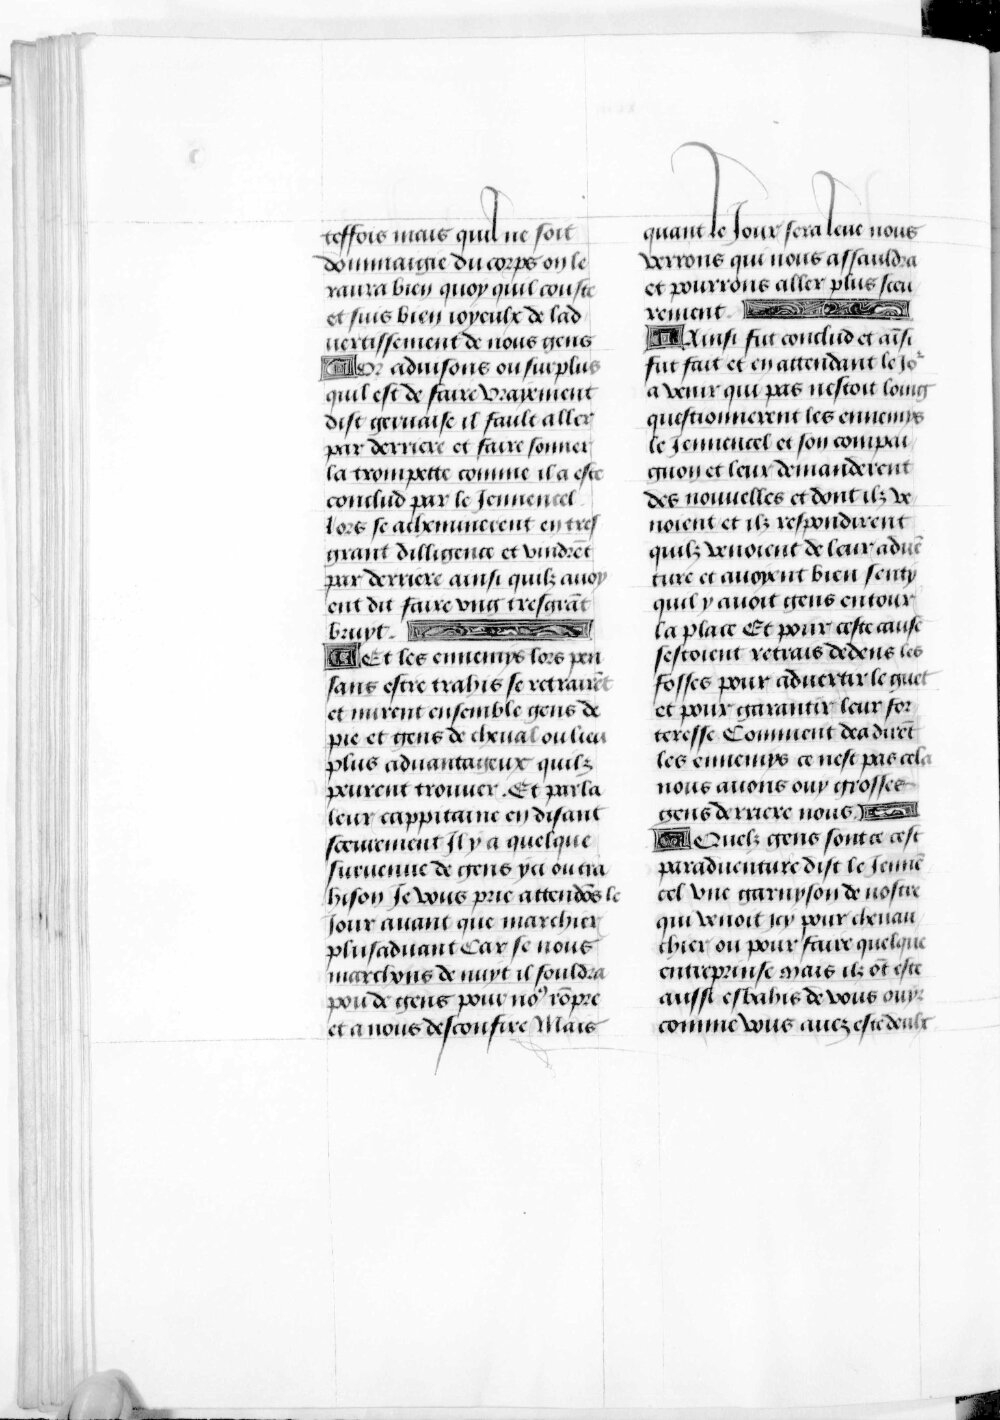 teffois mais quil ne soit
dommaigie du corps on le
raura bien quoy quil couste
et suis bien ioyeulx de lad
uertissement de nous gens
Or aduisons ou surplus
quil est de faire Vrayement
dist geruaise il fault aller
par derriere et faire sonner
la trompette comme il a este
conclud par le Jennencel
lors se acheminerent en tres
grant dilligence et vindrēt
par derriere ainsi quilz auoy
ent dit faire vng tresgrāt
bruyt.
Et les ennemys lors pen
sans estre trahis se retrairēt
et mirent ensemble gens de
pie et gens de cheual ou lieu
plus aduantageux quilz
peurent trouuer. Et parla
leur cappitaine en disant
sceurement Il y a quelque
suruenue de gens ycy ou tra
hison Je vous prie attendōs le
Jour auant que marchier
plusaduant Car se nous
marchons de nuyt il souldra
pou de gens pour noꝰ rōpre
et a nous desconfire Mais
quant le Jour sera leue nous
verrons qui nous assauldra
et pourrons aller plus sceu
rement.
Ainsi fut conclud et aīsi
fut fait et en attendant le Joʳ
a venir qui pas nestoit loing
questionnerent les ennemys
le Jennencel et son compai
gnon et leur demanderent
des nouuelles et dont ilz ve
noient et ilz respondirent
quilz venoient de leur aduē
ture et auoyent bien senty
quil y auoit gens entour
la place Et pour ceste cause
sestoient retrais dedens les
fosses pour aduertir le guet
et pour garantir leur for
teresse Comment dea dirēt
les ennemys ce nest pas cela
nous auons ouy grosses
gens derriere nous
Quelz gens sont ce cest
paraduenture dist le Jennē
cel vne garnyson de nostre
qui venoit icy pour cheuau
chier ou pour faire quelque
entreprinse Mais ilz ōt este
aussi esbahis de vous ouyr
comme vous auez este deulx